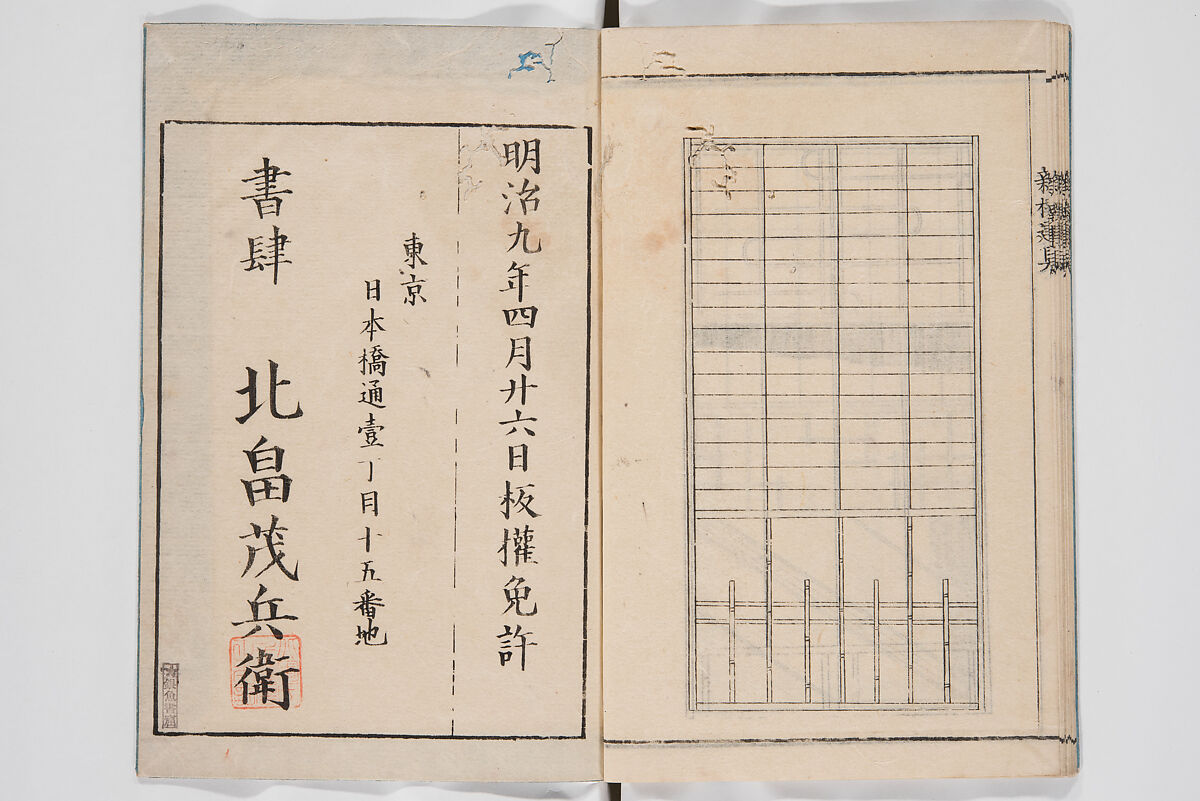 明治九年四月廿六日板權免許
東京
日本橋通壹丁目十五番地
書肆 北畠茂兵衛